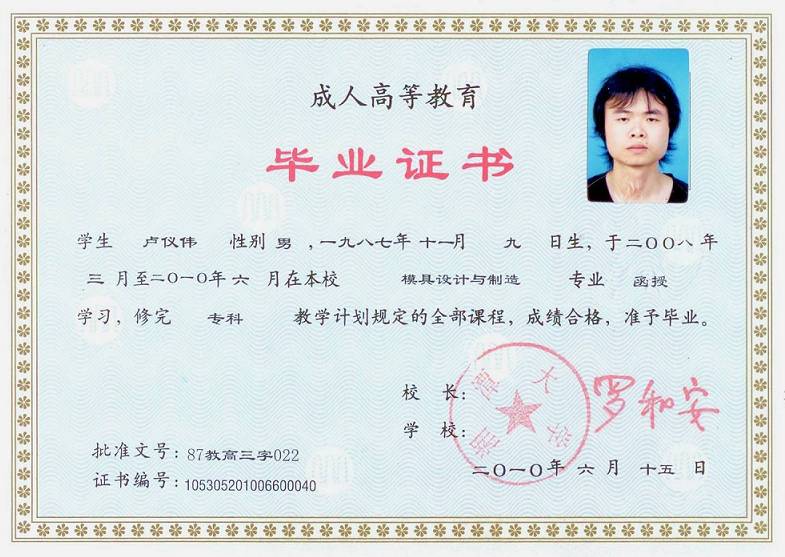 成人高等教育
毕业证书
学生 卢仪伟 性别 男 ,一九八七年 十一月 九 日生，于二〇〇八 年
三 月至二〇一〇年 六 月在本校 模具设计与制造 专业 函授
学习，修完 专科 教学计划规定的全部课程，成绩合格，准予毕业。
校 长：罗和安
学 校：
湘潭大学
批准文号：87教高三字022
二〇一〇年 六 月 十五 日
证书编号：105305201006600040